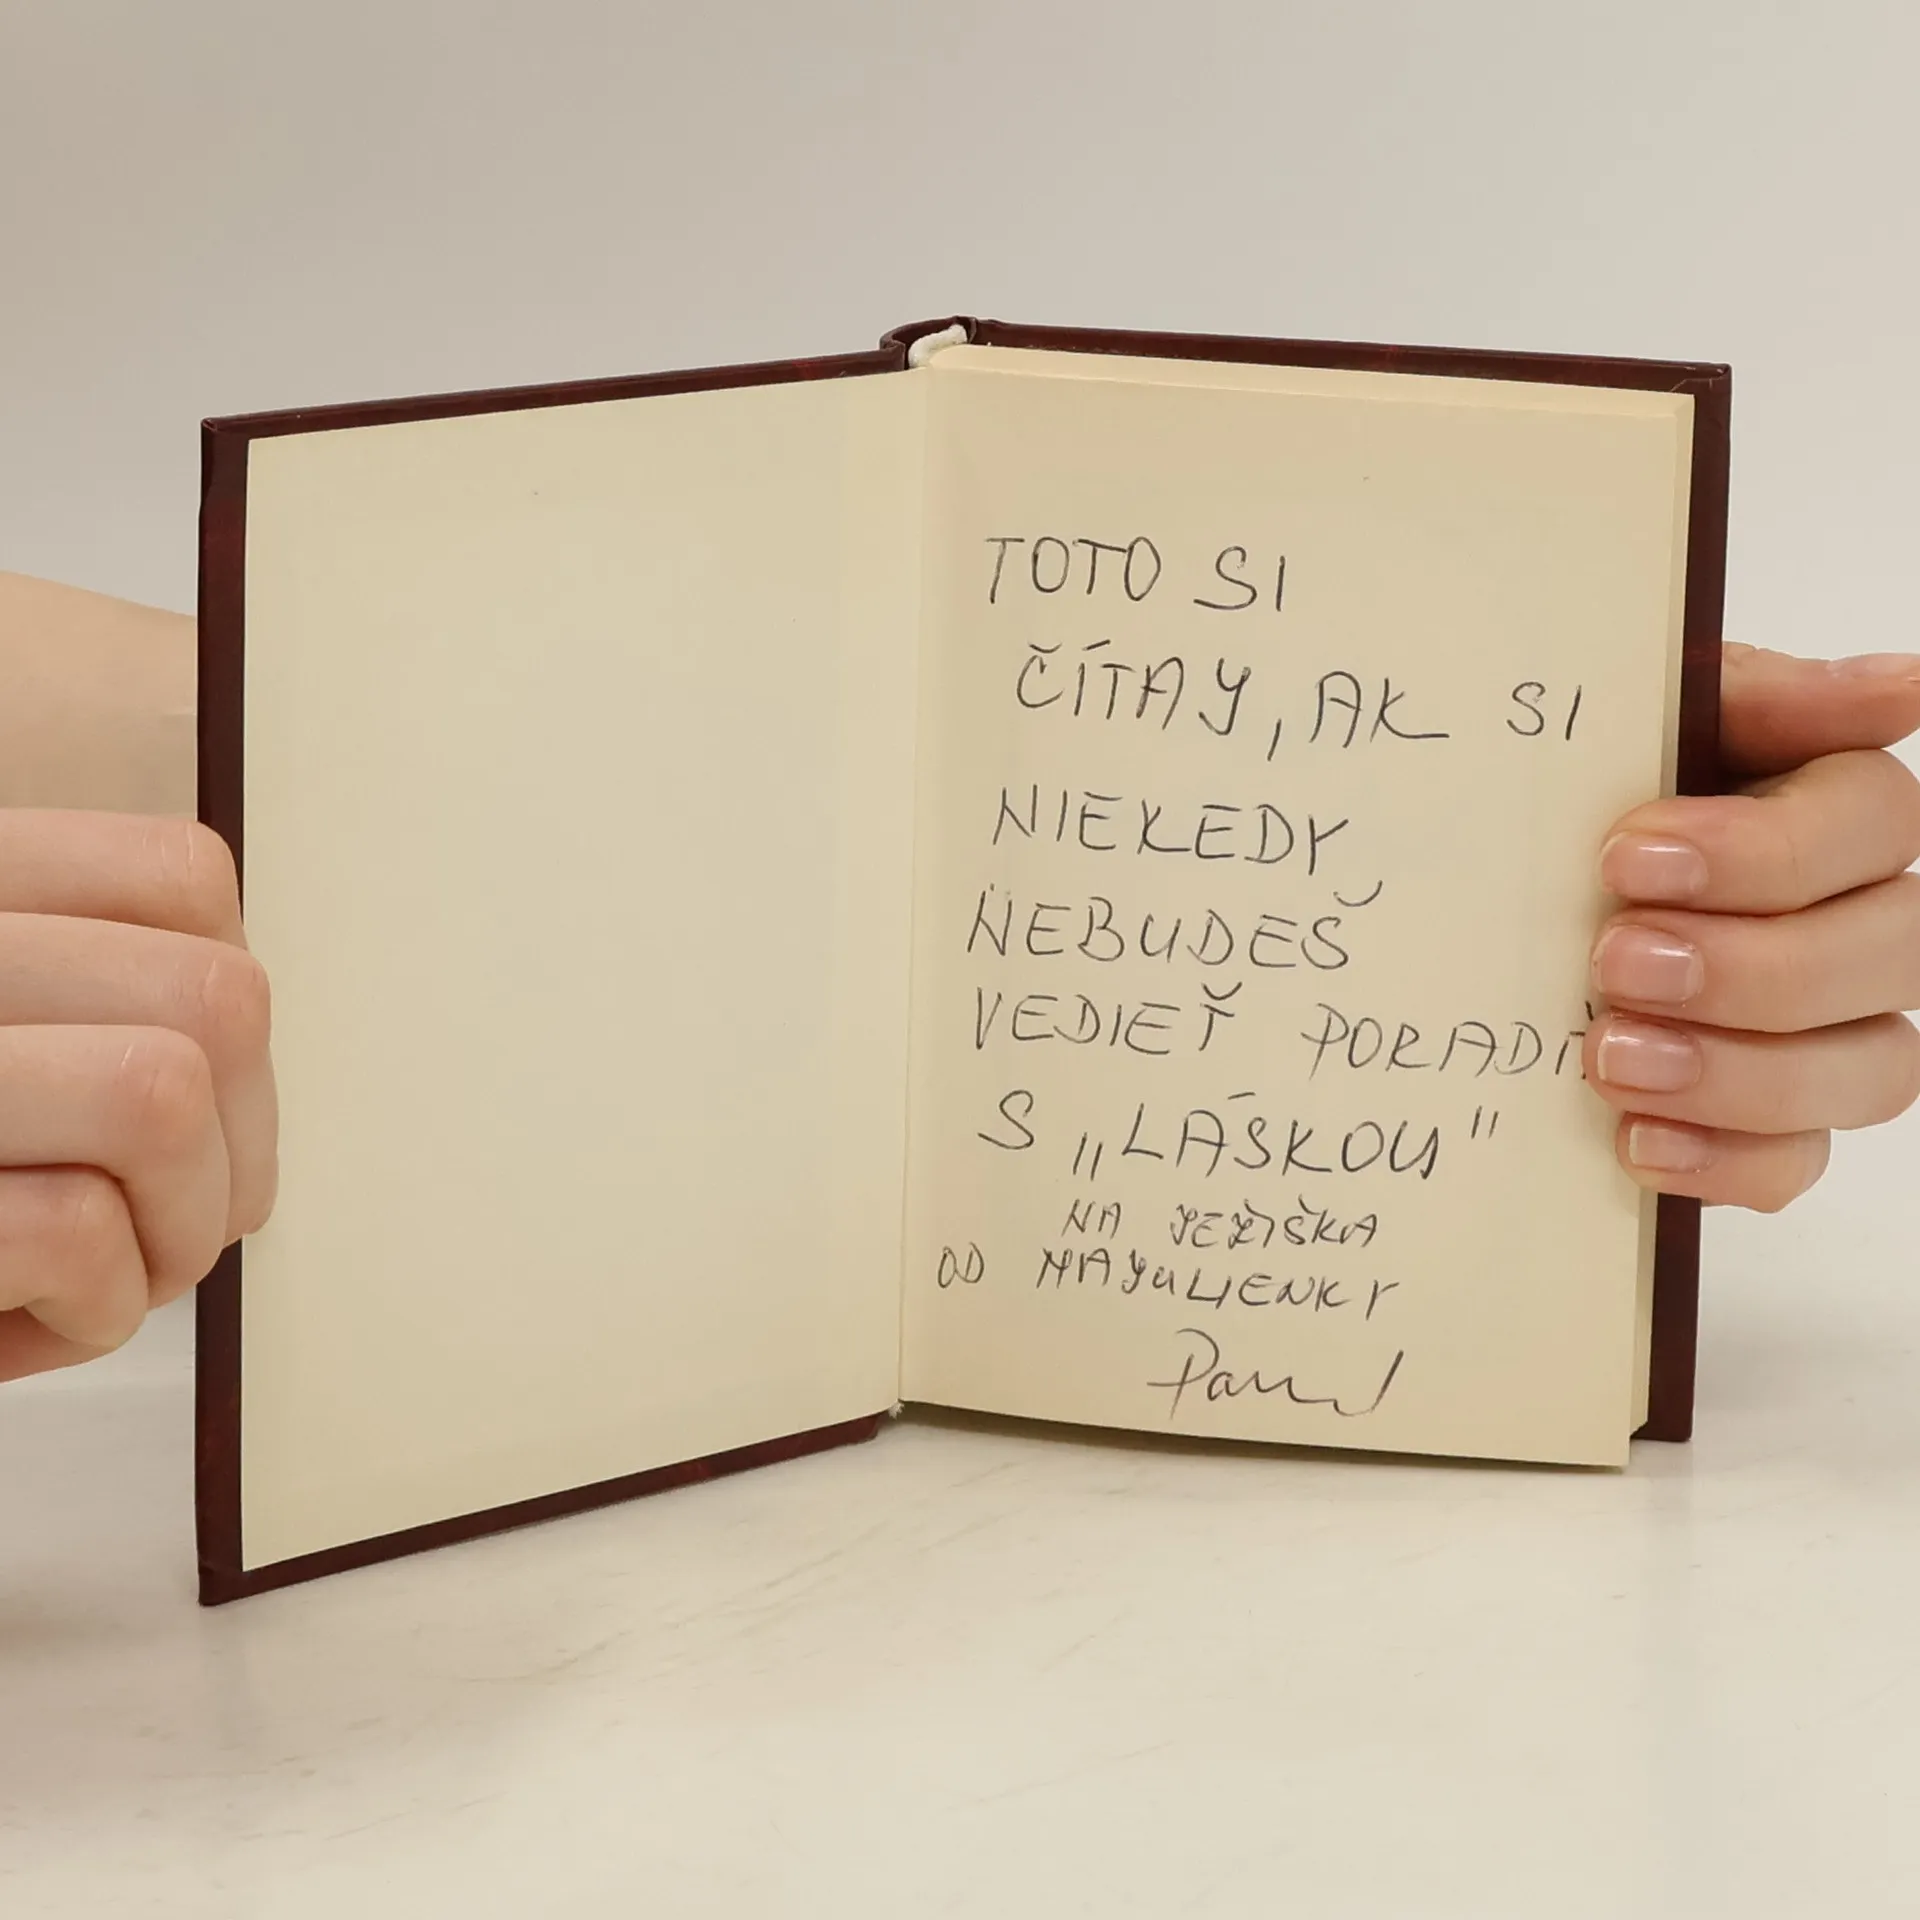 TOTO SI
ČÍTAJ, AK SI
NIEKEDY
NEBUDEŠ
VEDIEŤ PORADIŤ
S „LÁSKOU"
NA JEŽIŠKA
OD MAJULIENKY